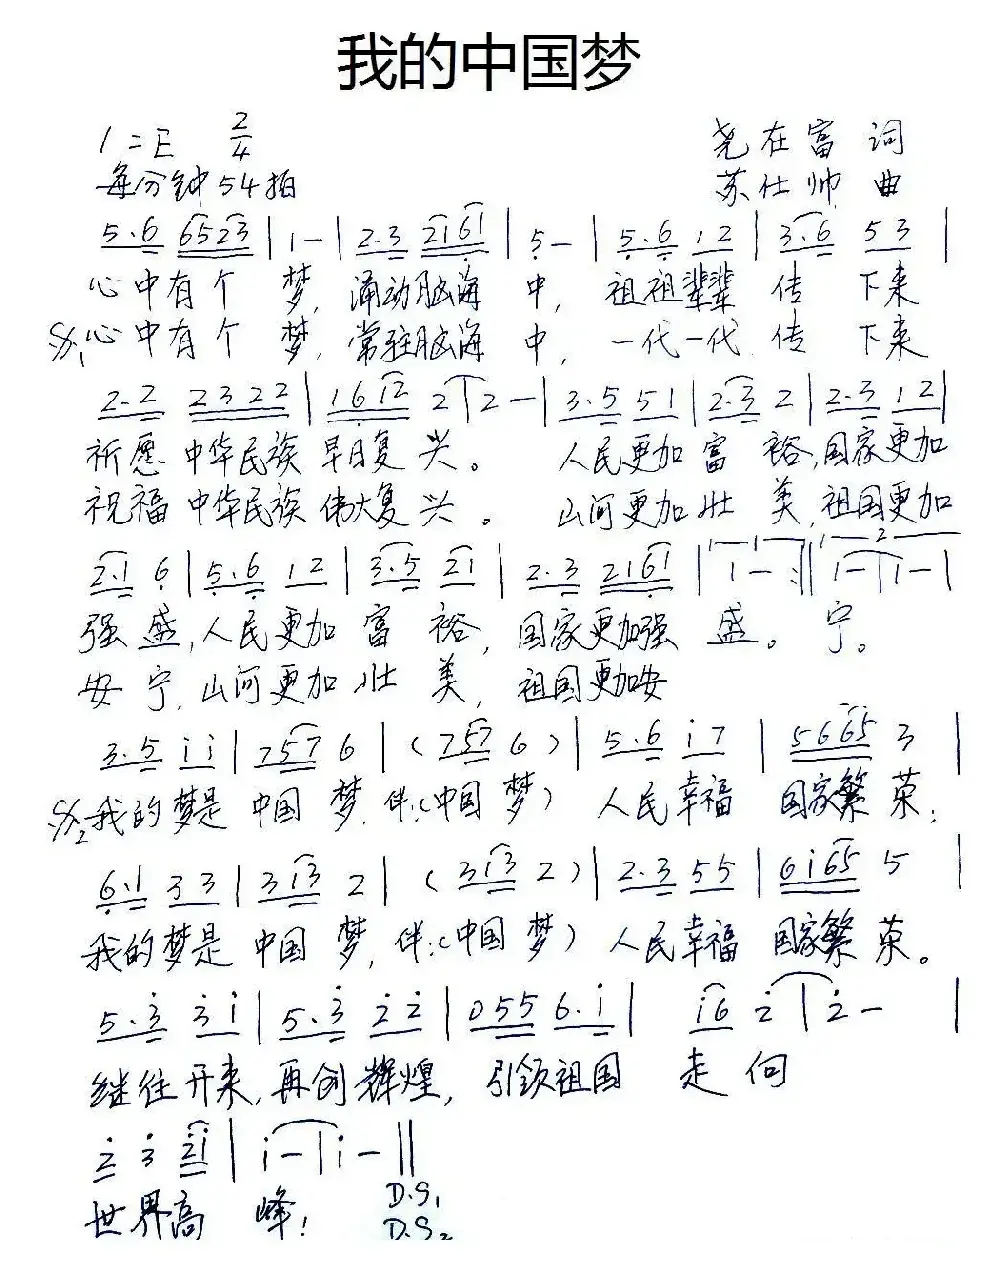 我的中国梦
1=E 2/4 尧在富 词
每分钟54拍 苏仕帅 曲
5.6 6523 | 1 - | 2.3 2161 | 5 - | 5.6 12 | 3.6 53 |
心中有个 梦, 涌动脑海 中, 祖祖辈辈 传 下来
𝄋1心中有个 梦, 常驻脑海 中, 一代一代 传 下来
2.2 2322 | 1612 2 | 2 - | 3.5 51 | 2.3 2 | 2.3 12 |
祈愿 中华民族 早日复 兴。 人民更加 富 裕,国家更加
祝福 中华民族 伟大复 兴。 山河更加 壮 美,祖国更加
2.1 6 | 5.6 12 | 3.5 21 | 2.3 2161 | 1 1 - :|| 2 1 - | 1 - |
强 盛,人民更加 富 裕, 国家更加强 盛。 宁。
安 宁,山河更加 壮 美, 祖国更加安
3.5 i i | 757 6 | (757 6) | 5.6 i7 | 5665 3 |
𝄋2我的梦是 中国 梦,伴:(中国 梦) 人民幸福 国家繁 荣;
6.1 33 | 313 2 | (313 2) | 2.3 55 | 6i65 5 |
我的梦是 中国 梦,伴:(中国 梦) 人民幸福 国家繁 荣。
5.3̇ 3̇i | 5.3̇ 2̇2̇ | 055 6.i | i6 2̇ | 2̇ - |
继往开来,再创辉煌, 引领祖国 走 向
2̇ 3̇ 2̇i | i - | i - ||
世界高 峰! D.S1
D.S2